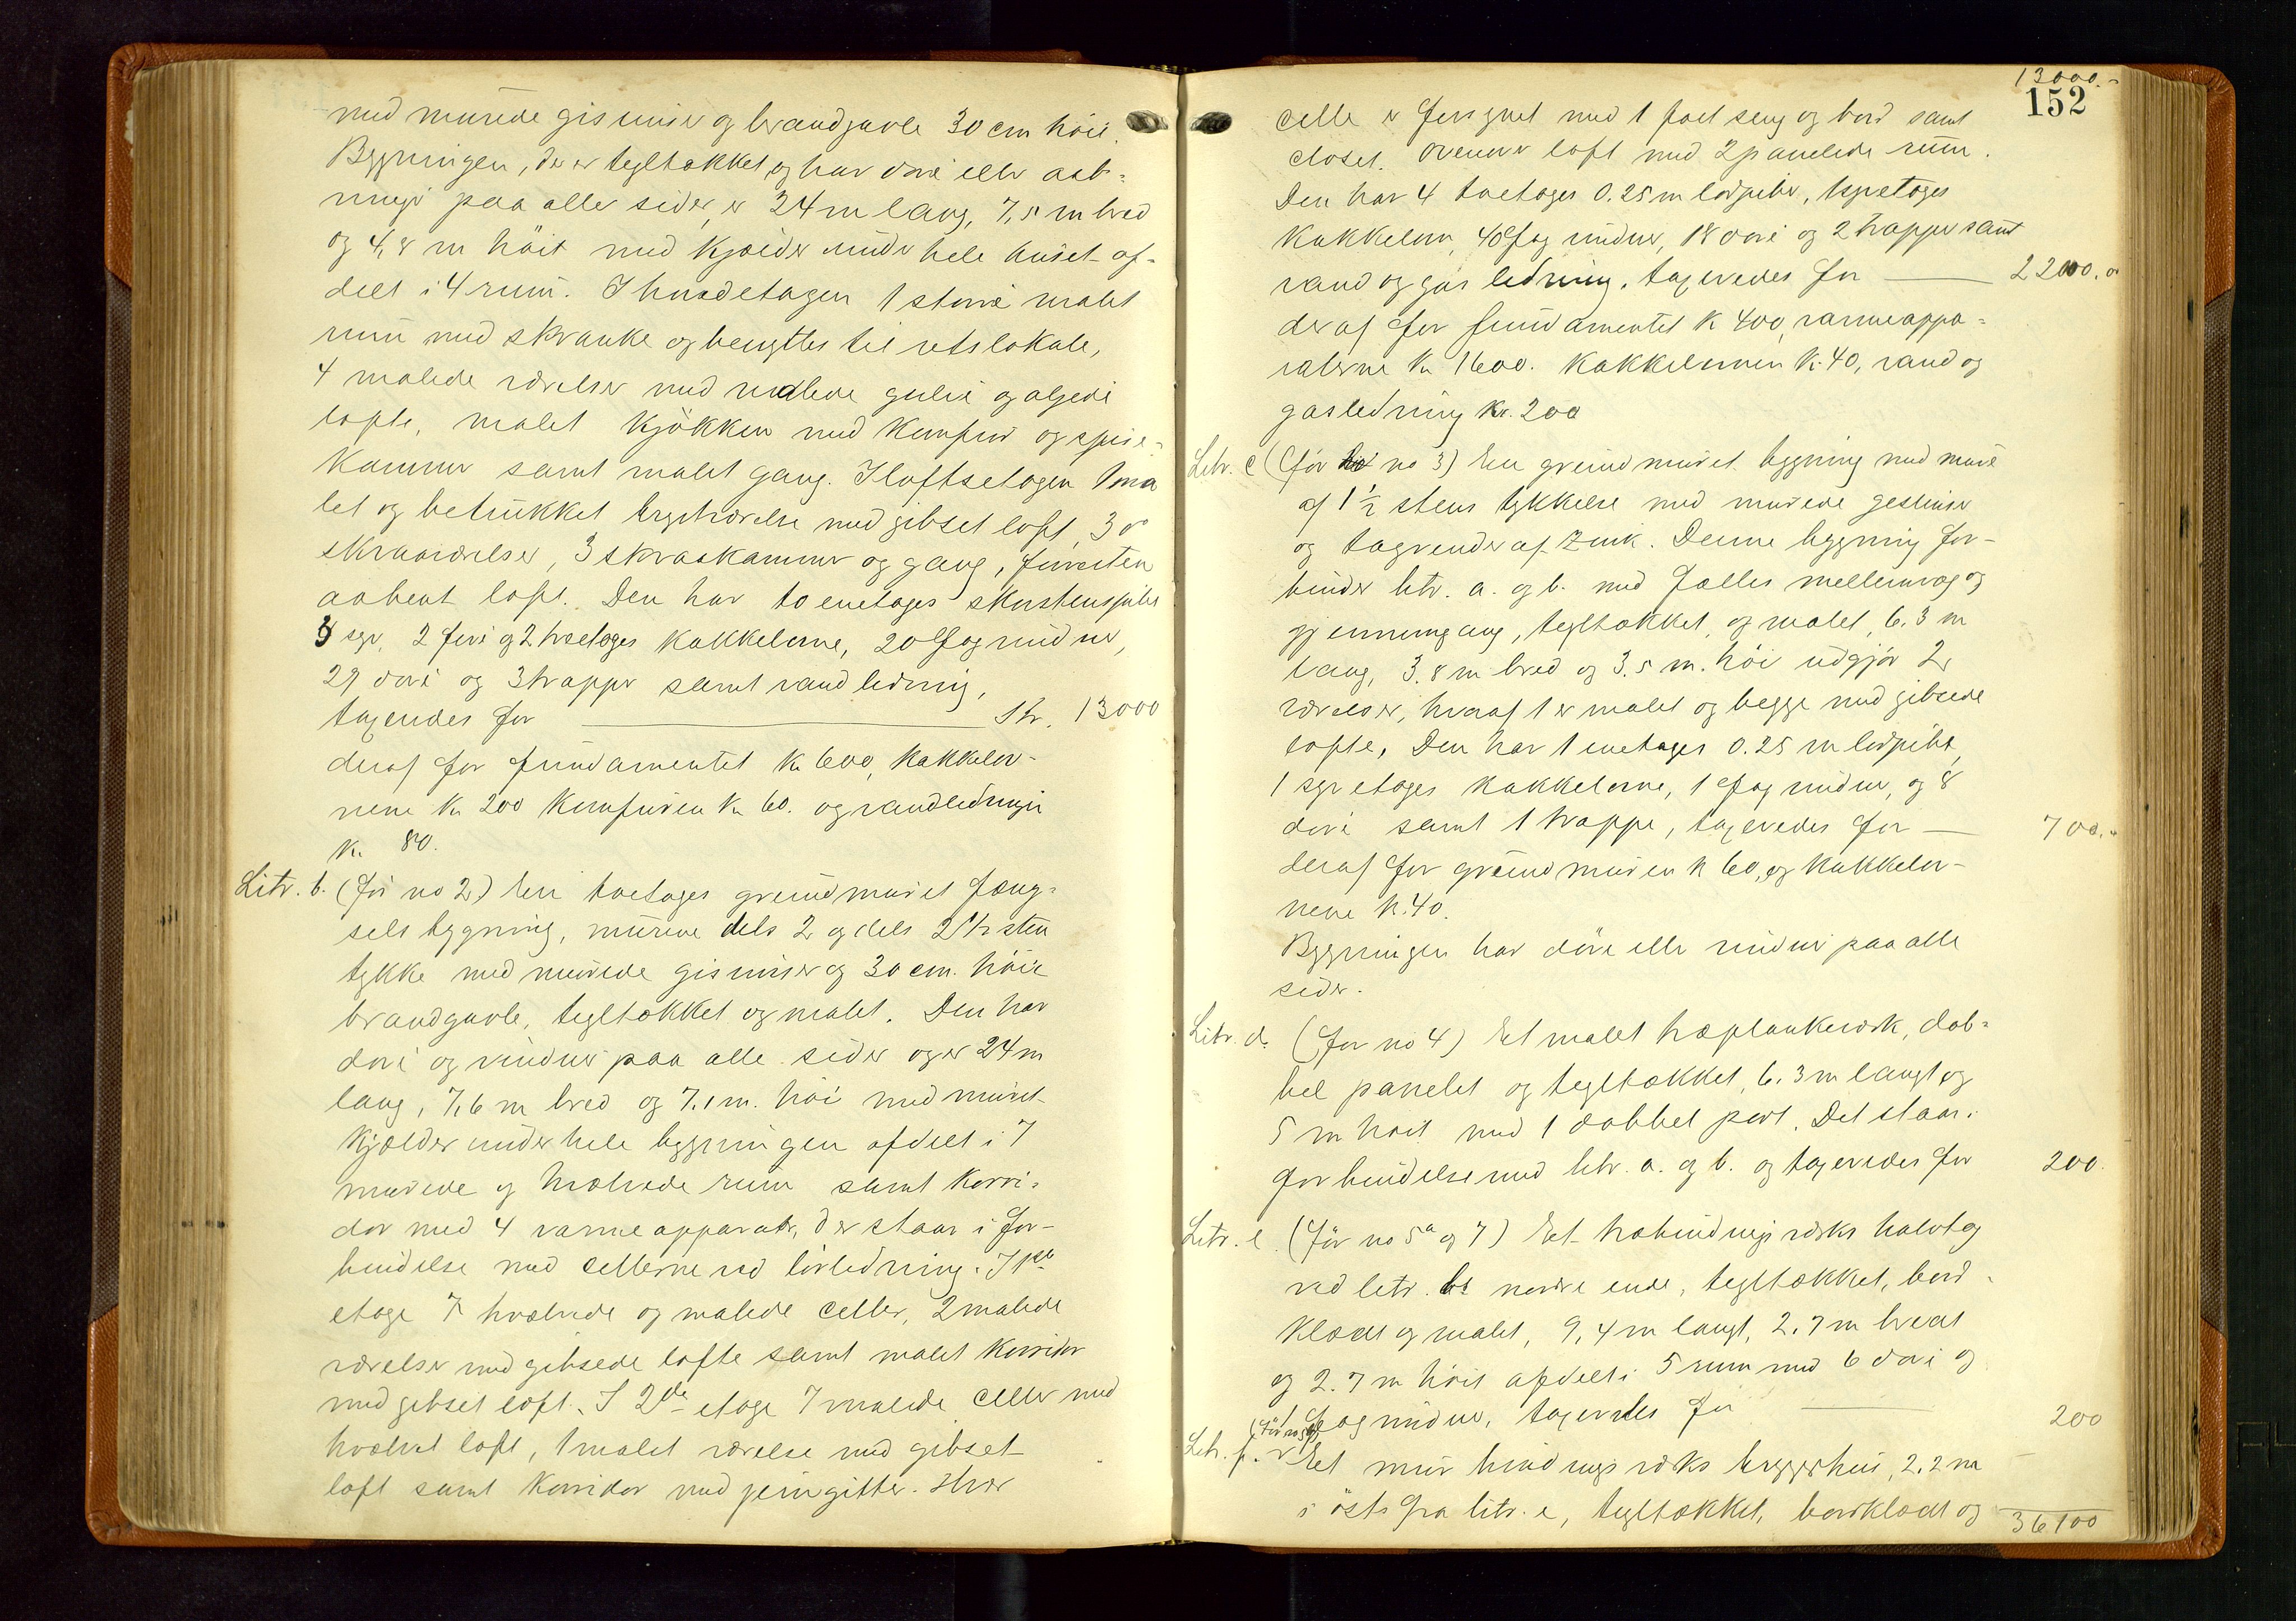 med murede gisimser og brandgavle 30 cm höie.
Bygningen, der er tegltækket og har döre eller aab-
ninger paa alle sider, er 24 m lang, 7,5 m bred
og 4,8 m höit med kjælder under hele huset af-
delt i 4 rum. I hovedetagen 1 större malet
rum med skranke og benyttes til retslokale,
4 malede værelser med malede gulve og gipsede
lofte, malet kjökken med komfur og spise-
kammer samt malet gang. I loftsetagen 1 ma
let og betrukket kvistværelse med gibset loft, 3
skraaværelser, 3 skraakammer og gang, forresten
aabent loft. Den har to enetages skorstenspiber
3 syv, 2 fire og 2 treetages kakkelovne, 20 fag vinduer,
29 döre og 3 trapper samt vandledning,
taxeredes for Str. 13000
deraf for fundamentet Kr 600, kakkelov-
nene Kr 200 komfuren Kr 60. og vandledningen
Kr. 80.
Litr. b. (för no 2) En toetages grundmuret fæng-
sels bygning, murene dels 2 og dels 2 1/2 sten
tykke med murede gisimser og 30 cm. höie
brandgavle, tegltækket og malet. Den har
döre og vinduer paa alle sider og er 24 m
lang, 7,6 m bred og 7,1 m. höi med muret
kjælder under hele bygningen afdelt i 7
murede og hvælvede rum samt korri-
dor med 4 varmeapparater, der staar i for-
bindelse med cellerne ved luftledning. I 1ste
etage 7 hvælvede og malede celler, 2 malede
værelser med gibsede lofte samt malet korridor
med gibset loft. I 2de etage 7 malede celler med
hvælvet loft, 1 malet værelse med gibset
loft samt korridor med jerngitter. Hver
13000.-
152
celle er forsynet med 1 fast seng og bord samt
closet. Ovenover loft med 2 panelede rum.
Den har 4 toetages 0.25 m lodpiber, 1 syvetages
kakkelovn, 40 fag vinduer, 18 döre og 2 trapper samt
vand og gas ledning, taxeredes for 22000.
deraf for fundamentet K 400, varmeappa-
raterne Kr 1600. kakkelovnen K. 40, vand og
gasledning Kr. 200
Litr. c (för no 3) En grundmuret bygning med mure
af 1 1/2 stens tykkelse med murede gesimser
og tagrender af zink. Denne bygning for-
binder litr. a. og b. med fælles mellemvæg og
gjennemgang, tegltækket, og malet, 6.3 m
lang, 3.8 m bred og 3.5 m. höi udgjör 2
værelser, hvoraf 1 er malet og begge med gibsede
lofte. Den har 1 enetages 0.25 m lodpibe,
1 syv etages kakkelovne, 1 fag vinduer, og 8
döre samt 1 trappe, taxeredes for 700.-
deraf for grundmuren K 60, og kakkelov-
nene K. 40.
Bygningen har döre eller vinduer paa alle
sider.
Litr. d. (för no 4) Et malet træplankeværk, dob-
bel panelet og tegltækket, 6.3 m langt og
5 m höit med 1 dobbel port. Det staar i
forbindelse med litr. a. og b. og taxeredes for 200.
Litr. e. (för no 5a og 7) Et træbindingsværks halvtag
ved litr. bs nordre ende, tegltækket, bord-
klædt og malet, 9,4 m langt, 2.7 m bredt
og 2.7 m höit afdelt i 5 rum med 6 döre og
fag vinduer, taxeredes for 200
Litr. f. Et mur bindingsværks bryggerhus, 2.2 m
i öst fra litr. e, tegltækket, bordklædt og
36100